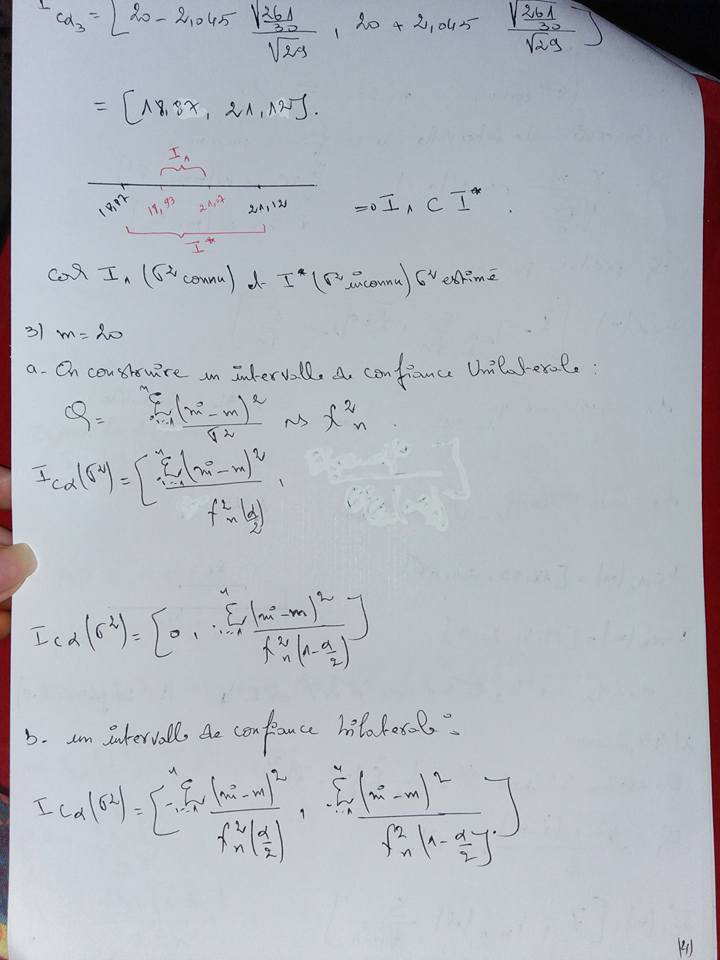 I cα₃ = [20 - 2,045 √(261/30)/√29 , 20 + 2,045 √(261/30)/√29]
= [18,87, 21,12].
I₁
18,87 18,93 21,07 21,12 => I₁ ⊂ I*.
I*
car I₁ (σ² connu) et I* (σ² inconnu) σ² estimé
3) m = 20
a- On construire un intervalle de confiance Unilaterale :
Q = Σⁿᵢ₌₁ (xi - m)² / σ² ~> χ²ₙ.
I cα(σ²) = [Σⁿᵢ₌₁ (xi - m)² / χ²ₙ(α/2) ,
I cα(σ²) = [0, Σⁿᵢ₌₁ (xi - m)² / χ²ₙ(1 - α/2)]
b- un intervalle de confiance bilaterale :
I cα(σ²) = [Σⁿᵢ₌₁ (xi - m)² / χ²ₙ(α/2) , Σⁿᵢ₌₁ (xi - m)² / χ²ₙ(1 - α/2)].
(4)